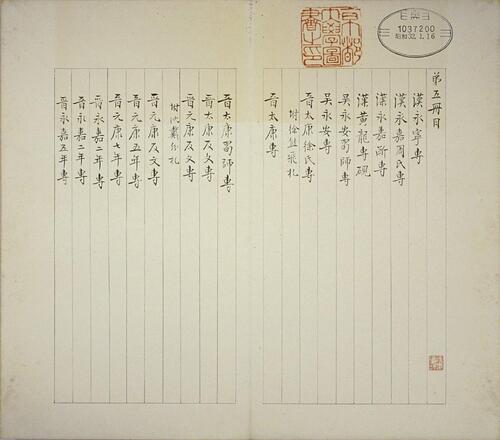 1037200
昭和32.1.16
京都
大學圖
書之印
弟五冊目
漢永寧專
漢永嘉周氏專
漢永嘉斷專
漢黃龍專硯
吳永安蜀師專
吳永安專
晉太康徐氏專
附徐熊飛札
晉太康專
晉太康蜀師專
晉太康反文專
晉元康反文專
附沈 札
晉元康反文專
晉元康五年專
晉元康七年專
晉永嘉二年專
晉永嘉二年專
晉永嘉五年專